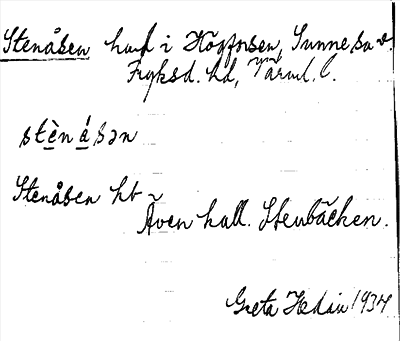 Stenåsen hmd i Högforsen, Sunne sn
Fryksd. hd, Värml. l.
stènásən
Stenåsen hd
Även kall. Stenbäcken.
Greta Hedin 1934